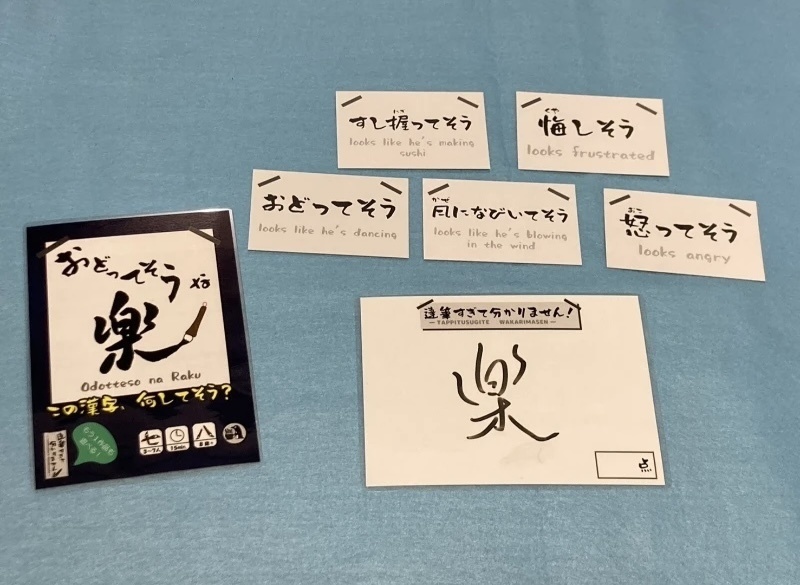 すし握ってそう
にぎ
looks like he's making
sushi
悔しそう
くや
looks frustrated
おどってそう
looks like he's dancing
風になびいてそう
かぜ
looks like he's blowing
in the wind
怒ってそう
おこ
looks angry
おどってそう
な
楽
Odotteso na Raku
この漢字、何してそう?
もう1作品も
遊べる!
3~7人
15min
達筆すぎて分かりません!
— TAPPITUSUGITE WAKARIMASEN —
楽
点